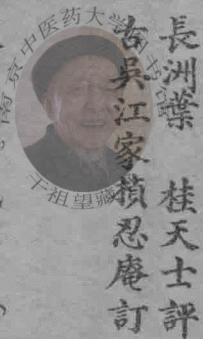 長洲葉　桂天士評
古吳江家楨忍庵訂
南京中医药大学图书馆
干祖望藏